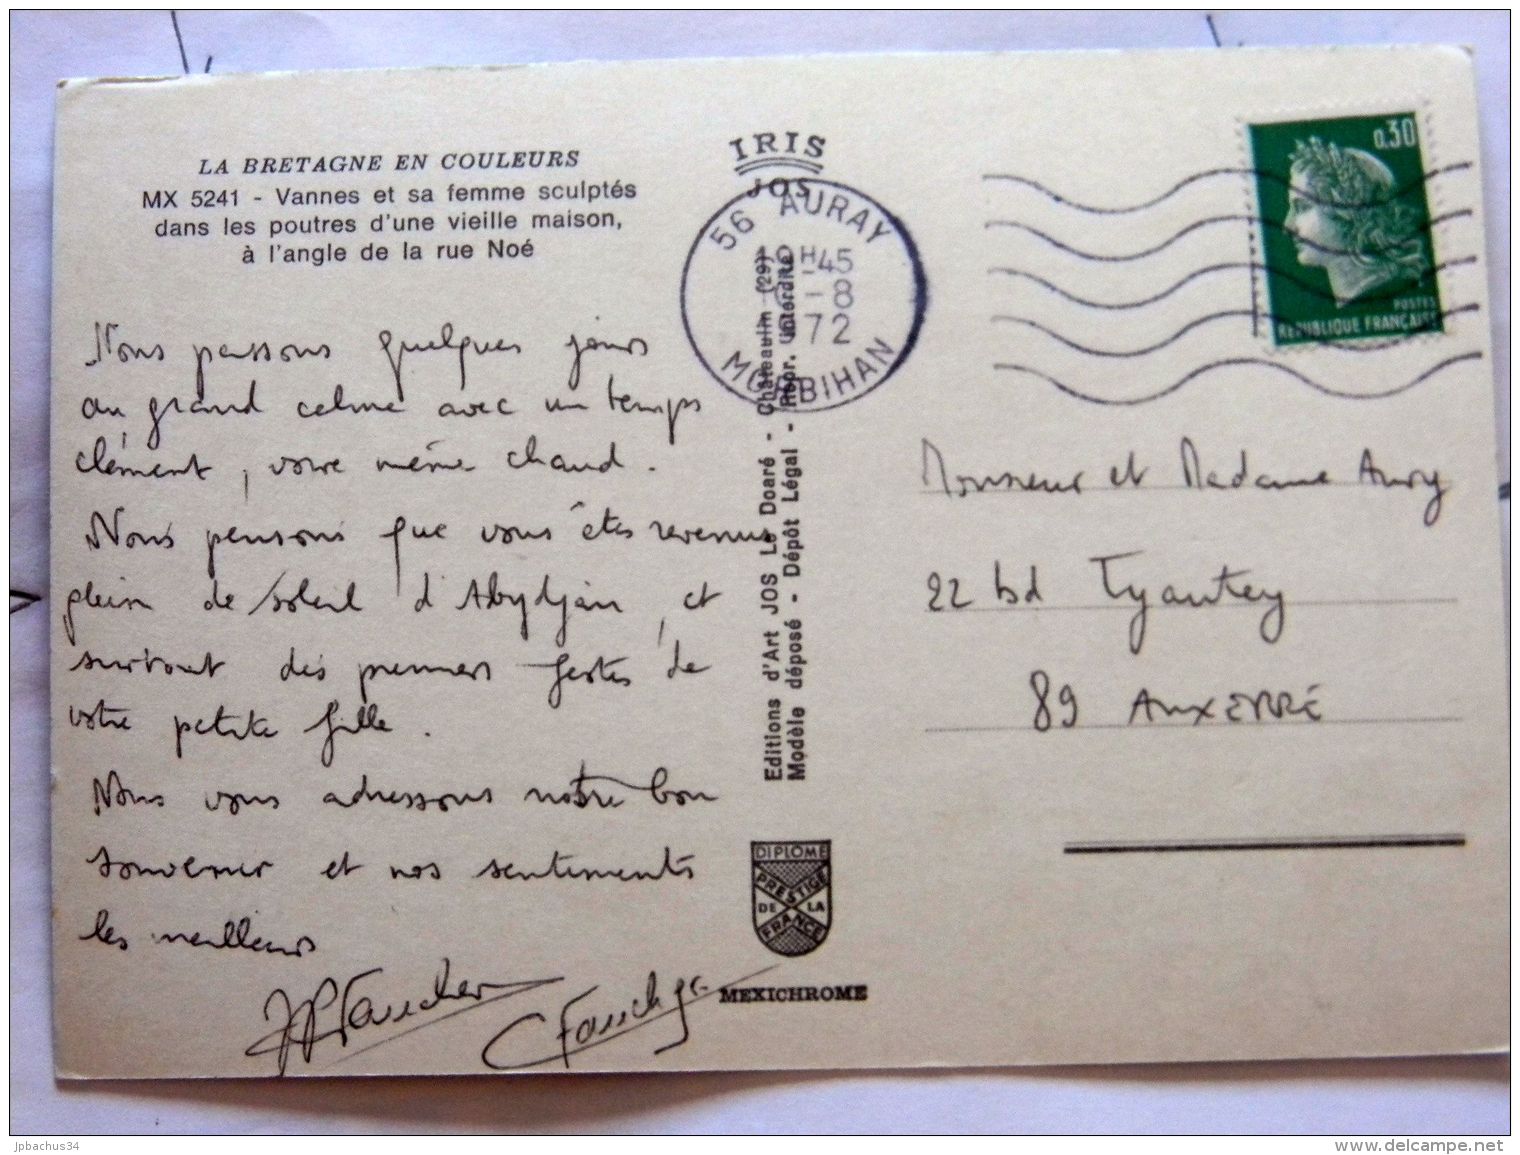 LA BRETAGNE EN COULEURS
MX 5241 - Vannes et sa femme sculptés
dans les poutres d'une vieille maison,
à l'angle de la rue Noé
Nous passons quelques jours
au grand calme avec un temps
clément, voire même chaud.
Nous pensons que vous êtes revenus
plein de soleil d'Abydjan, et
surtout des premiers gestes de
votre petite fille.
Nous vous adressons notre bon
souvenir et nos sentiments
les meilleurs
JPFaucher
CFaucher
IRIS
JOS
56 AURAY
H-45
-8
72
MORBIHAN
Editions d'Art JOS Le Doaré - Châteaulin (29)
Modèle déposé - Dépôt Légal - Repr. interdite
DIPLOME
PRESTIGE
DE LA
FRANCE
MEXICHROME
0,30
POSTES
REPUBLIQUE FRANÇAISE
Monsieur et Madame Aury
22 bd Vyautey
89 AUXERRE
jpbachus34
www.delcampe.net